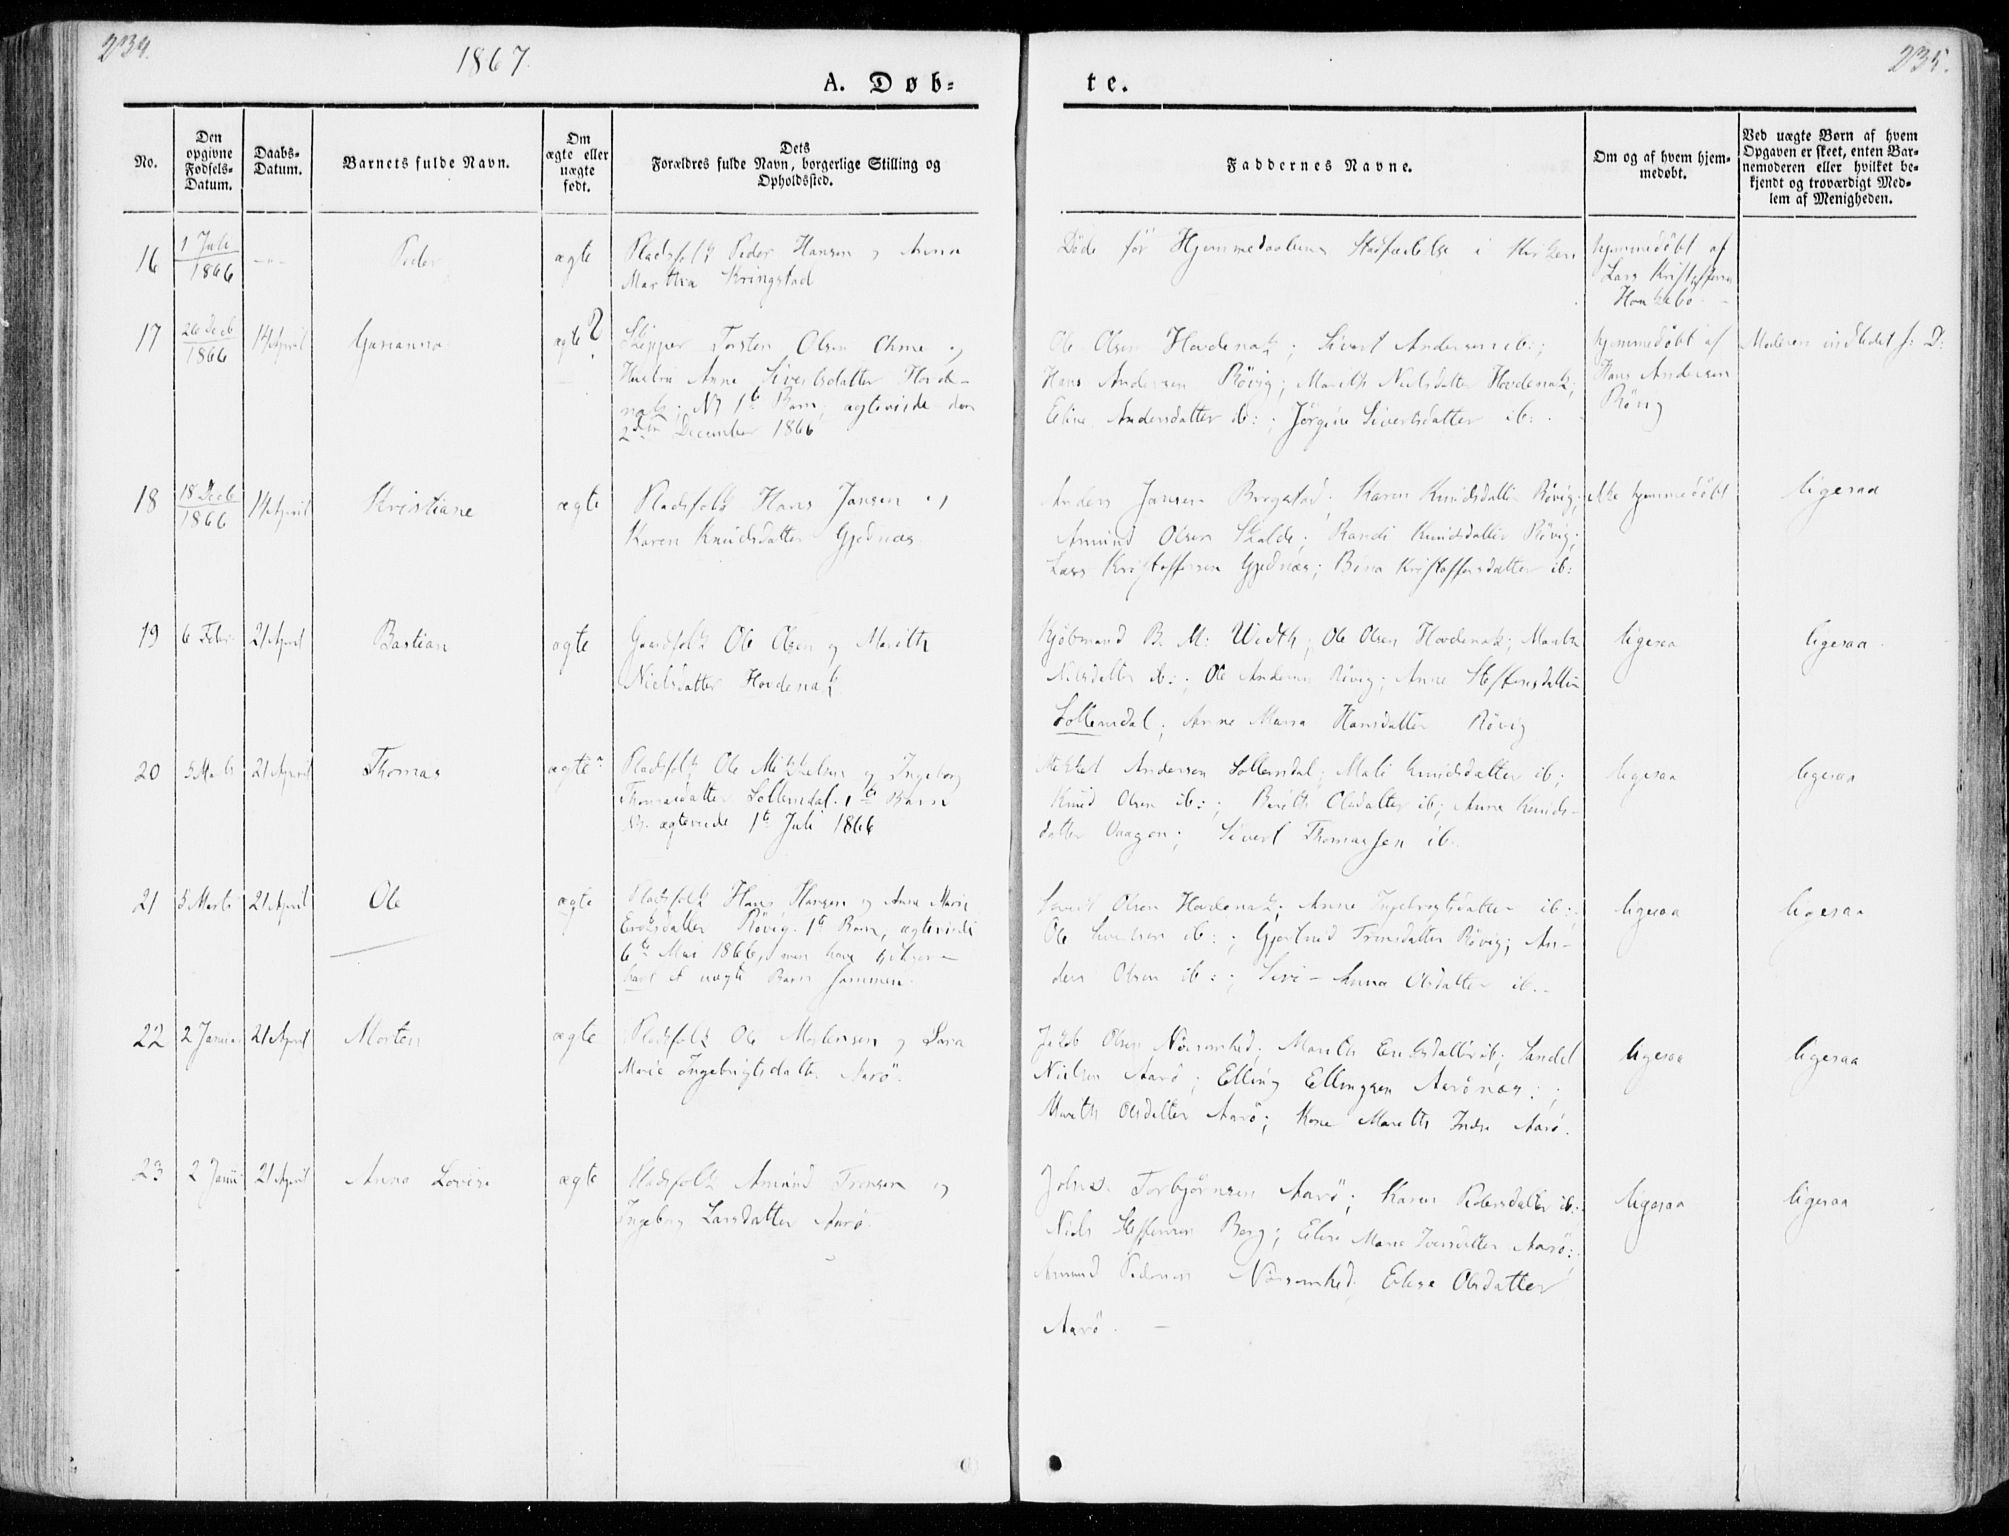 234.
1867.
235.
A. Døb=
te.
No.
Den opgivne Fødsels-Datum.
Daabs-Datum.
Barnets fulde Navn.
Om ægte eller uægte født.
Dets Forældres fulde Navn, borgerlige Stilling og Opholdssted.
Faddernes Navne.
Om og af hvem hjemmedøbt.
Ved uægte Børn af hvem Opgaven er skeet, enten Barnemoderen eller hvilket bekjendt og troværdigt Medlem af Menigheden.
16
1 Juli
1866
Peder
ægte
Pladsfolk Peder Hansen og Anna
Martha Kringstad
Døde før Hjemmedaabens Stadfæstelse i Kirken
hjemmedøbt af
Lars Kristoffersen
17
26 Decb
1866
14 April
ægte ?
Skipper Torsten Olsen Ohme og
Hustru Anne Sivertsdatter Hovde-
nak; N. 1te Barn, ægteviede den
December 1866
Ole Olsen Hovdenak; Sivert Andersen ib:;
Hans Andersen Røvig; Marith Nielsdatter Hovdenak;
Eline Andersdatter ib:; Jørgine Sivertsdatter ib:
hjemmedøbt af
Hans Andersen
Røvig
Moderen indledet f: D:
18
18 Decb
1866
14 April
Kristiane
ægte
Pladsfolk Hans Jansen og
Karen Knudsdatter Gjednæs
Anders Jansen Karen Knudsdatter Røvig;
Amund Olsen Skalde; Randi Knudsdatter Røvig;
Lars Kristoffersen Gjednæs; Kristoffersdatter ib:
ikke hjemmedøbt
ligesaa
19
6 Febr.
21 April
Bastian
ægte
Gaardfolk Ole Olsen og Marith
Nielsdatter Hovdenak
Kjøbmand B. M. Width; Ole Olsen Hovdenak; Marith
Nilsdatter ib:; Ole Andersen Røvig; Anne Steffensdatter
Sollemdal; Anne Maria Hansdatter Røvig
ligesaa
ligesaa
20
5 Marts
21 April
Thomas
ægte
Pladsfolk Ole Mikkelsen og Ingeborg
Thomasdatter Sollemdal. 1te Barn
N. ægteviede 1te Juli 1866
Mikkel Andersen Sollemdal; Mali Knudsdatter ib;
Knud Olsen ib:; Berith Olsdatter ib; Anne Knuds-
datter Vaagen; Sivert Thomassen ib.
ligesaa
ligesaa
21
5 Marts
21 April
Ole
ægte
Pladsfolk Hans Hansen og Anne Marie
Eriksdatter Røvig. 1te Barn, ægteviede
6te Mai 1866, men have tidligere
havt et uægte Barn sammen.
Sivert Olsen Hovdenak; Anne Ingebrigtsdatter ib:;
Ole Sivertsen ib:; Gjertrud Trondsdatter Røvig; An-
ders Olsen ib:; Sivi-Anna Olsdatter ib.
ligesaa
ligesaa
22
2 Januar
21 April
Morten
ægte
Pladsfolk Ole Mortensen og Sara
Marie Ingebrigtsdatter Aarø.
Jakob Olsen Nøisomhed; Marith Eriksdatter ib;
Nielsen Aarø; Elling Ellingsen Aarønæs:;
Marith Olsdatter Aarø; Kone Marith Indre Aarø.
ligesaa
ligesaa
23
2 Janu
21 April
Anna Lovise
ægte
Pladsfolk Amund Tronsen og
Ingeborg Larsdatter Aarø.
Johns. Torbjørnsen Aarø; Karen Pedersdatter ib:
Niels Steffensen Berg; Eline Marie Iversdatter Aarø:
Amund Pedersen Nøisomhed; Elise Olsdatter
Aarø.
ligesaa
ligesaa